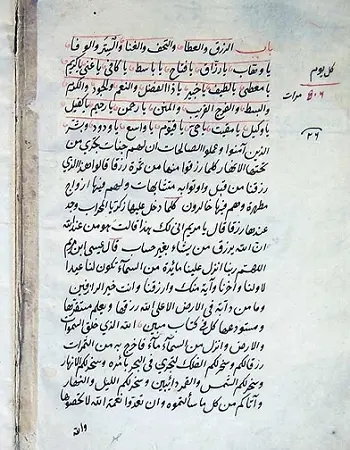 باب الرزق والعطا والتحف والغنا واليسر والوفا
يا وهاب يا رزاق يا فتاح يا باسط يا كافي يا غني يا كريم
يا معطي يا لطيف يا خبير يا ذا الفضل والنعم والجود والكرم
والبسط والفرج القريب والمنن يا رحمن يا رحيم يا كفيل
يا وكيل يا مقيت يا حي يا قيوم يا واسع يا ودود وبشر
الذين آمنوا وعملوا الصالحات ان لهم جنات تجري من
تحتها الانهار كلما رزقوا منها من ثمرة رزقا قالوا هذا الذي
رزقنا من قبل واوتوا به متشابها ولهم فيها ازواج
مطهرة وهم فيها خالدون كلما دخل عليها زكريا المحراب وجد
عندها رزقا قال يا مريم انى لك هذا قالت هو من عند الله
ان الله يرزق من يشاء بغير حساب قال عيسى ابن مريم
اللهم ربنا انزل علينا مائدة من السماء تكون لنا عيدا
لاولنا وآخرنا وآية منك وارزقنا وانت خير الرازقين
وما من دابة في الارض الا على الله رزقها ويعلم مستقرها
ومستودعها كل في كتاب مبين الله الذي خلق السموات
والارض وانزل من السماء ماء فاخرج به من الثمرات
رزقا لكم وسخر لكم الفلك لتجري في البحر بامره وسخر لكم الانهار
وسخر لكم الشمس والقمر دائبين وسخر لكم الليل والنهار
وآتاكم من كل ما سألتموه وان تعدوا نعمة الله لا تحصوها
والله
كل يوم
مرات